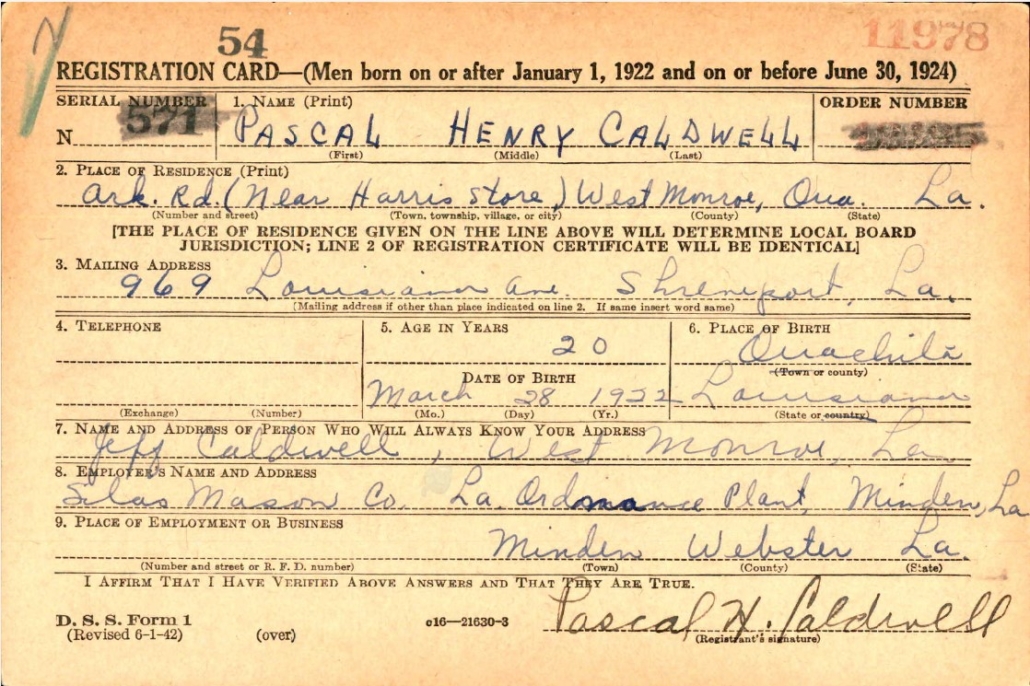 54
11978
REGISTRATION CARD—(Men born on or after January 1, 1922 and on or before June 30, 1924)
SERIAL NUMBER 1. NAME (Print) ORDER NUMBER
N 571 PASCAL HENRY CALDWELL
(First) (Middle) (Last)
2. PLACE OF RESIDENCE (Print)
Ark. Rd. (Near Harris Store) West Monroe, Oua. La.
(Number and street) (Town, township, village, or city) (County) (State)
[THE PLACE OF RESIDENCE GIVEN ON THE LINE ABOVE WILL DETERMINE LOCAL BOARD
JURISDICTION; LINE 2 OF REGISTRATION CERTIFICATE WILL BE IDENTICAL]
3. MAILING ADDRESS
969 Louisiana Ave. Shreveport, La.
(Mailing address if other than place indicated on line 2. If same insert word same)
4. TELEPHONE 5. AGE IN YEARS 6. PLACE OF BIRTH
20 Ouachita
(Town or county)
DATE OF BIRTH
March 28 1922 Louisiana
(Exchange) (Number) (Mo.) (Day) (Yr.) (State or country)
7. NAME AND ADDRESS OF PERSON WHO WILL ALWAYS KNOW YOUR ADDRESS
Jeff Caldwell, West Monroe, La
8. EMPLOYER'S NAME AND ADDRESS
Silas Mason Co. La. Ordnance Plant, Minden, La
9. PLACE OF EMPLOYMENT OR BUSINESS
Minden Webster La.
(Number and street or R. F. D. number) (Town) (County) (State)
I AFFIRM THAT I HAVE VERIFIED ABOVE ANSWERS AND THAT THEY ARE TRUE.
D. S. S. Form 1
(Revised 6-1-42) (over) c16—21630-3 Pascal H. Caldwell
(Registrant's signature)